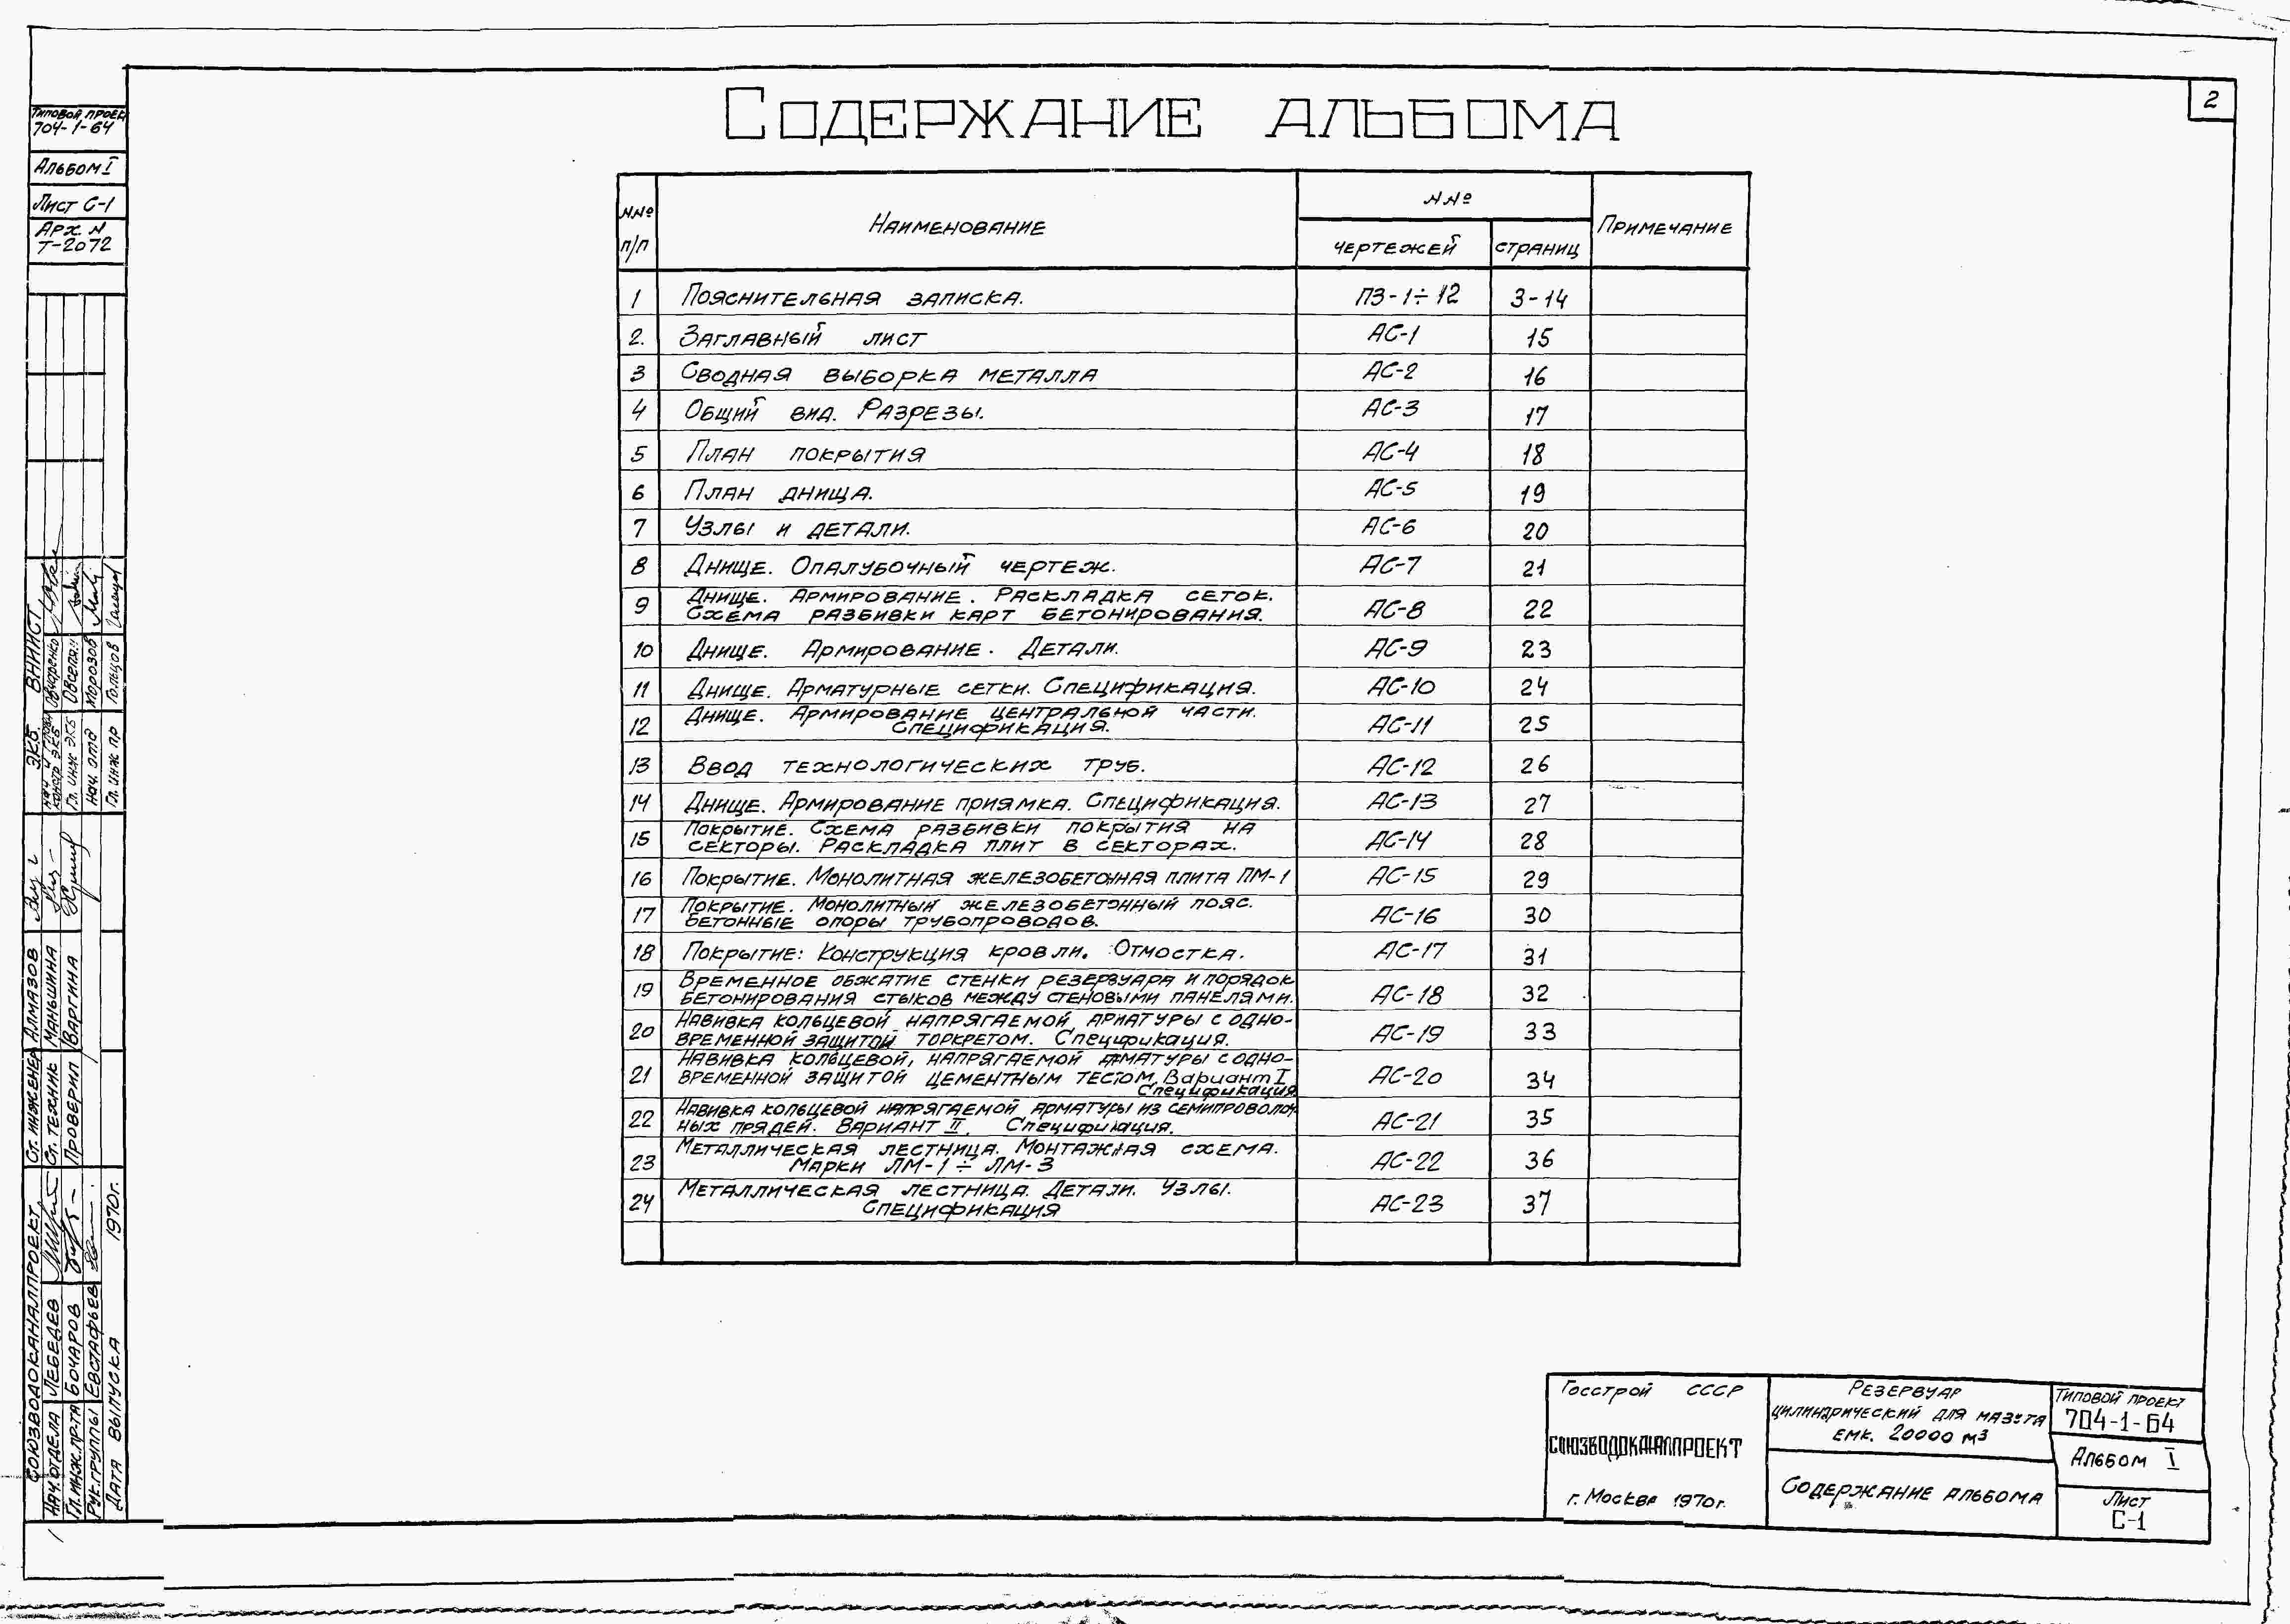 2
СОДЕРЖАНИЕ АЛЬБОМА
ТИПОВОЙ ПРОЕК
704-1-64
АЛЬБОМ I
ЛИСТ С-1
АРХ. N
Т-2072
NNº п/п НАИМЕНОВАНИЕ NNº ПРИМЕЧАНИЕ
ЧЕРТЕЖЕЙ СТРАНИЦ
1 ПОЯСНИТЕЛЬНАЯ ЗАПИСКА. ПЗ-1÷12 3-14
2. ЗАГЛАВНЫЙ ЛИСТ АС-1 15
3 СВОДНАЯ ВЫБОРКА МЕТАЛЛА АС-2 16
4 ОБЩИЙ ВИД. РАЗРЕЗЫ. АС-3 17
5 ПЛАН ПОКРЫТИЯ АС-4 18
6 ПЛАН ДНИЩА. АС-5 19
7 УЗЛЫ И ДЕТАЛИ. АС-6 20
8 ДНИЩЕ. ОПАЛУБОЧНЫЙ ЧЕРТЕЖ. АС-7 21
9 ДНИЩЕ. АРМИРОВАНИЕ. РАСКЛАДКА СЕТОК.
СХЕМА РАЗБИВКИ КАРТ БЕТОНИРОВАНИЯ. АС-8 22
10 ДНИЩЕ. АРМИРОВАНИЕ. ДЕТАЛИ. АС-9 23
11 ДНИЩЕ. АРМАТУРНЫЕ СЕТКИ. СПЕЦИФИКАЦИЯ. АС-10 24
12 ДНИЩЕ. АРМИРОВАНИЕ ЦЕНТРАЛЬНОЙ ЧАСТИ.
СПЕЦИФИКАЦИЯ. АС-11 25
13 ВВОД ТЕХНОЛОГИЧЕСКИХ ТРУБ. АС-12 26
14 ДНИЩЕ. АРМИРОВАНИЕ ПРИЯМКА. СПЕЦИФИКАЦИЯ. АС-13 27
15 ПОКРЫТИЕ. СХЕМА РАЗБИВКИ ПОКРЫТИЯ НА
СЕКТОРЫ. РАСКЛАДКА ПЛИТ В СЕКТОРАХ. АС-14 28
16 ПОКРЫТИЕ. МОНОЛИТНАЯ ЖЕЛЕЗОБЕТОННАЯ ПЛИТА ПМ-1 АС-15 29
17 ПОКРЫТИЕ. МОНОЛИТНЫЙ ЖЕЛЕЗОБЕТОННЫЙ ПОЯС.
БЕТОННЫЕ ОПОРЫ ТРУБОПРОВОДОВ. АС-16 30
18 ПОКРЫТИЕ: КОНСТРУКЦИЯ КРОВЛИ. ОТМОСТКА. АС-17 31
19 ВРЕМЕННОЕ ОБЖАТИЕ СТЕНКИ РЕЗЕРВУАРА И ПОРЯДОК
БЕТОНИРОВАНИЯ СТЫКОВ МЕЖДУ СТЕНОВЫМИ ПАНЕЛЯМИ. АС-18 32
20 НАВИВКА КОЛЬЦЕВОЙ НАПРЯГАЕМОЙ АРМАТУРЫ С ОДНО-
ВРЕМЕННОЙ ЗАЩИТОЙ ТОРКРЕТОМ. СПЕЦИФИКАЦИЯ. АС-19 33
21 НАВИВКА КОЛЬЦЕВОЙ, НАПРЯГАЕМОЙ АРМАТУРЫ С ОДНО-
ВРЕМЕННОЙ ЗАЩИТОЙ ЦЕМЕНТНЫМ ТЕСТОМ. Вариант I
Спецификация. АС-20 34
22 НАВИВКА КОЛЬЦЕВОЙ НАПРЯГАЕМОЙ АРМАТУРЫ ИЗ СЕМИПРОВОЛОЧ
НЫХ ПРЯДЕЙ. ВАРИАНТ II. Спецификация. АС-21 35
23 МЕТАЛЛИЧЕСКАЯ ЛЕСТНИЦА. МОНТАЖНАЯ СХЕМА.
МАРКИ ЛМ-1 ÷ ЛМ-3 АС-22 36
24 МЕТАЛЛИЧЕСКАЯ ЛЕСТНИЦА. ДЕТАЛИ. УЗЛЫ.
СПЕЦИФИКАЦИЯ АС-23 37
ЭКБ. ВНИИСТ
КОНСТР. ЭКБ Овчаренко
Гл. инж ЭКБ
Нач. отд Морозов
Гл. инж пр Гольцов
СТ. ИНЖЕНЕР АЛМАЗОВ
СТ. ТЕХНИК МАНЬШИНА
ПРОВЕРИЛ ВАРГИНА
СОЮЗВОДОКАНАЛПРОЕКТ
НАЧ. ОТДЕЛА ЛЕБЕДЕВ
ГЛ. ИНЖ. ПР-ТА БОЧАРОВ
РУК. ГРУППЫ ЕВСТАФЬЕВ
ДАТА ВЫПУСКА 1970г.
ГОССТРОЙ СССР
СОЮЗВОДОКАНАЛПРОЕКТ
г. МОСКВА 1970г.
РЕЗЕРВУАР
ЦИЛИНДРИЧЕСКИЙ ДЛЯ МАЗУТА
ЕМК. 20000 м³
СОДЕРЖАНИЕ АЛЬБОМА
ТИПОВОЙ ПРОЕКТ
704-1-64
АЛЬБОМ I
ЛИСТ
С-1